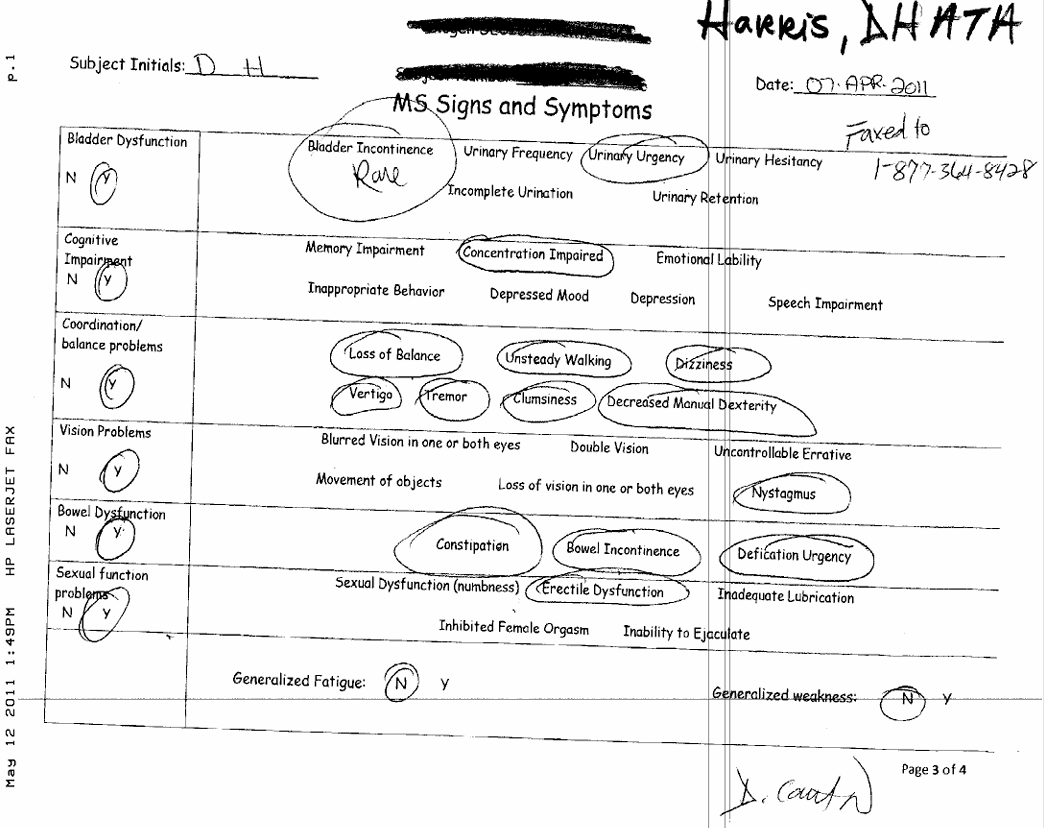 Harris, DHATA
p.1
Subject Initials: D H
Date: 07.APR.2011
MS Signs and Symptoms
Faxed to
1-877-364-8428
Bladder Dysfunction
N Y
Bladder Incontinence Urinary Frequency Urinary Urgency Urinary Hesitancy
Rare
Incomplete Urination Urinary Retention
Cognitive
Impairment
N Y
Memory Impairment Concentration Impaired Emotional Lability
Inappropriate Behavior Depressed Mood Depression Speech Impairment
Coordination/
balance problems
N Y
Loss of Balance Unsteady Walking Dizziness
Vertigo Tremor Clumsiness Decreased Manual Dexterity
Vision Problems
N Y
Blurred Vision in one or both eyes Double Vision Uncontrollable Errative
Movement of objects Loss of vision in one or both eyes Nystagmus
Bowel Dysfunction
N Y
Constipation Bowel Incontinence Defication Urgency
Sexual function
problems
N Y
Sexual Dysfunction (numbness) Erectile Dysfunction Inadequate Lubrication
Inhibited Female Orgasm Inability to Ejaculate
Generalized Fatigue: N Y Generalized weakness: N Y
Page 3 of 4
May 12 2011 1:49PM HP LASERJET FAX